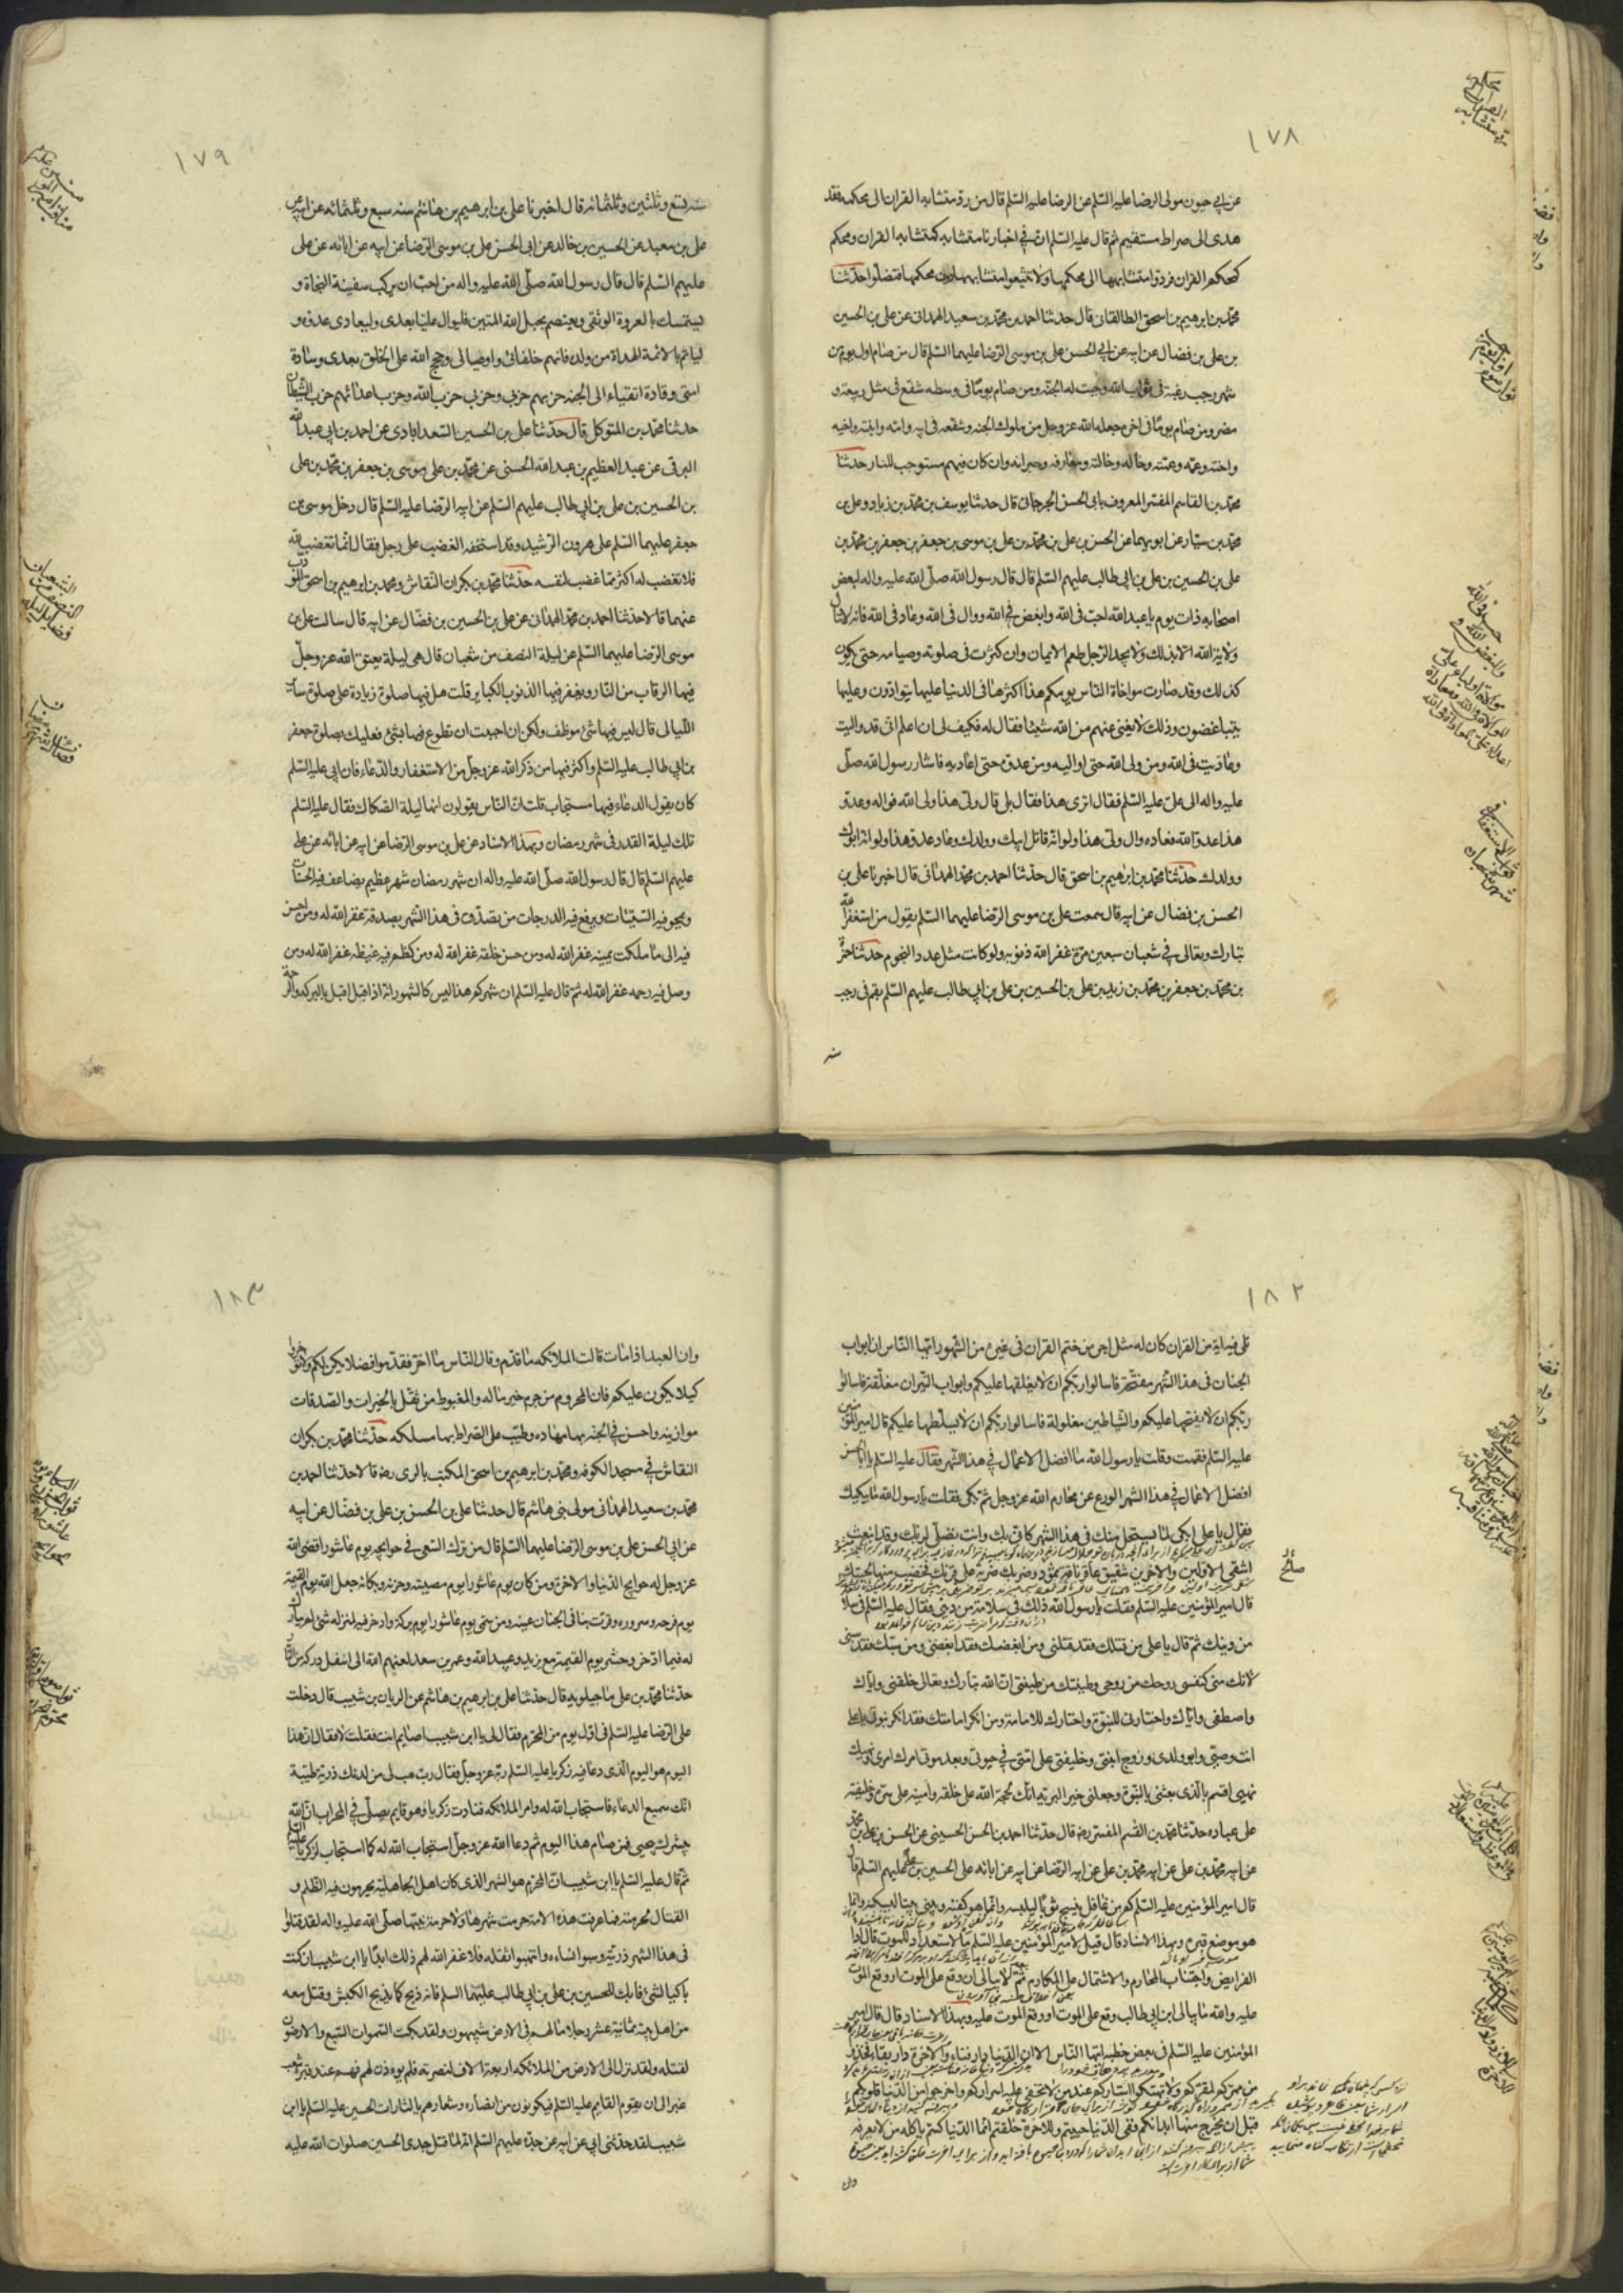 ١٧٨
عن ابي حيون مولى الرضا عليه السّلم عن الرضا عليه السّلم قال من ردّ متشابه القران الى محكمه فقد
هدى الى صراط مستقيم ثم قال عليه السّلم ان في اخبارنا متشابه كمتشابه القران ومحكم
كمحكم القران فردوا متشابهها الى محكمها ولا تتبعوا متشابهها دون محكمها فتضلّوا حدّثنا
محمّد بن ابرهيم بن اسحق الطالقانى قال حدثنا احمد بن محمّد بن سعيد الهمدانى عن على بن الحسين
بن على بن فضال عن ابيه عن ابي الحسن على بن موسى الرّضا عليهما السّلم قال من صام اول يوم من
شهر رجب رغبة فى ثواب الله وجبت له الجنّه ومن صام يومًا فى وسطه شفع فى مثل ربيعه و
مضر ومن صام يومًا فى اخره جعله الله عز وجل من ملوك الجنه وشفعه فى ابيه وامه وابنه واخيه
واخته وعمّه وعمته وخاله وخالته ومعارفه وجيرانه وان كان فيهم مستوجب للنار حدثنا
محمّد بن القاسم المفسّر المعروف بابى الحسن الجرجانى قال حدثنا يوسف بن محمّد بن زياد وعلى بن
محمّد بن سيّار عن ابويهما عن الحسن بن على بن محمّد بن على بن موسى بن جعفر بن جعفر بن محمّد بن
على بن الحسين بن على بن ابي طالب عليهم السّلم قال قال رسول الله صلّى الله عليه واله لبعض
اصحابه ذات يوم يا عبد الله احب فى الله وابغض فى الله ووال فى الله وعاد فى الله فانه لا تنال
ولاية الله الا بذلك ولا يجد الرّجل طعم الايمان وان كثرت فى صلوته وصيامه حتى يكون
كذلك وقد صارت مواخاة النّاس يومكم هذا اكثرها فى الدنيا عليها يتوادّون وعليها
يتباغضون وذلك لا يغنى عنهم من الله شيئا فقال له فكيف لى ان اعلم انّى قد واليت
وعاديت فى الله ومن ولى الله حتى اواليه ومن عدوّه حتى اعاديه فاشار رسول الله صلّى
عليه واله الى علىّ عليه السّلم فقال اترى هذا فقال بلى قال ولىّ هذا ولى الله فواله وعدوّ
هذا عدوّ الله فعاده وال ولىّ هذا ولو انّه قاتل ابيك وولدك وعاد عدوّ هذا ولو انّه ابوك
وولدك حدّثنا محمّد بن ابرهيم بن اسحق قال حدّثنا احمد بن محمّد الهمدانى قال اخبرنا على بن
الحسن بن فضال عن ابيه قال سمعت على بن موسى الرّضا عليهما السّلم يقول من استغفر الله
تبارك وتعالى فى شعبان سبعين مرّة غفر الله ذنوبه ولو كانت مثل عدد النجوم حدثنا حمزة
بن محمّد بن جعفر بن محمّد بن زيد بن على بن الحسين بن على بن ابي طالب عليهم السّلم بقم فى رجب
سنه
١٧٩
سنه تسع وثلثين وثلثمائه قال اخبرنا على بن ابرهيم بن هاشم سنه سبع وثلثمائه عن ابيه عن
على بن معبد عن الحسين بن خالد عن ابى الحسن على بن موسى الرّضا عن ابيه عن ابائه عن على
عليهم السّلم قال قال رسول الله صلّى الله عليه واله من احبّ ان يركب سفينة النجاة و
يستمسك بالعروة الوثقى ويعتصم بحبل الله المتين فليوال عليّا بعدى وليعادى عدوّه و
ليأتم بالائمة الهداة من ولده فانهم خلفائى واوصيائى وحجج الله على الخلق بعدى وسادة
امتى وقادة اتقياء الى الجنه حزبهم حزبى وحزبى حزب الله وحزب اعدائهم حزب الشّيطان
حدثنا محمّد بن المتوكل قال حدّثنا على بن الحسين السّعدابادى عن احمد بن ابى عبد الله
البرقى عن عبد العظيم بن عبد الله الحسنى عن محمّد بن على بن موسى بن جعفر بن محمّد بن على
بن الحسين بن على بن ابي طالب عليهم السّلم عن ابيه الرّضا عليه السّلم قال دخل موسى بن
جعفر عليهما السّلم على هرون الرّشيد وقد استخفه الغضب على رجل فقال انّما تغضب لله
فلا تغضب له اكثر ممّا غضب لنفسه حدّثنا محمّد بن بكران النّقاش ومحمد بن ابرهيم بن اسحق المؤدب
عنهما قالا حدّثنا احمد بن محمّد الهمدانى عن على بن الحسين بن فضّال عن ابيه قال سالت على بن
موسى الرّضا عليهما السّلم عن ليلة النصف من شعبان قال هى ليلة يعتق الله عز وجلّ
فيها الرقاب من النّار ويغفر فيها الذنوب الكباير قلت هل فيها صلوة زيادة على صلوة ساير
اللّيالى قال ليس فيها شئ موظف ولكن ان احببت ان تطوع فيها بشئ فعليك بصلوة جعفر
بن ابى طالب عليه السّلم واكثر فيها من ذكر الله عز وجلّ من الاستغفار والدّعاء فان ابى عليه السّلم
كان يقول الدعاء فيها مستجاب قلت انّ النّاس يقولون انها ليلة الصّكاك فقال عليه السّلم
تلك ليلة القدر فى شهر رمضان وبهذا الاسناد عن على بن موسى الرّضا عن ابيه عن ابائه عن على
عليهم السّلم قال قال رسول الله صلّى الله عليه واله ان شهر رمضان شهر عظيم يضاعف فيه الحسنات
ويمحو فيه السّيّئات ويرفع فيه الدرجات من تصدّق فى هذا الشّهر بصدقة غفر الله له ومن احسن
فيه الى ما ملكت يمينه غفر الله له ومن حسن خلقه غفر الله له ومن كظم فيه غيظه غفر الله له ومن
وصل فيه رحمه غفر الله له ثمّ قال عليه السّلم ان شهركم هذا ليس كالشهور انّه اذا اقبل اقبل بالبركه والرحمة
١٨٢
تلى فيه اية من القران كان له مثل اجر من ختم القران فى غيره من الشّهور ايّها النّاس ان ابواب
الجنان فى هذا الشّهر مفتّحة فاسالوا ربّكم ان لا يغلقها عليكم وابواب النّيران مغلّقة فاسالوا
ربّكم ان لا يفتحها عليكم والشّياطين مغلولة فاسالوا ربّكم ان لا يسلّطها عليكم قال امير المؤمنين
عليه السّلم فقمت وقلت يا رسول الله ما افضل الاعمال فى هذا الشّهر فقال عليه السّلم يا ابا الحسن
افضل الاعمال فى هذا الشهر الورع عن محارم الله عز وجل ثم بكى فقلت يا رسول الله ما يبكيك
فقال يا على ابكى لما يستحل منك فى هذا الشهر كانى بك وانت تصلّى لربّك وقد انبعث
اشقى الاولين والاخرين شقيق عاقر ناقة ثمود فضربك ضربة على قرنك فخضب منها لحيتك
قال امير المؤمنين عليه السّلم فقلت يا رسول الله ذلك فى سلامة من دينى فقال عليه السّلم فى سلامة
من دينك ثم قال يا على من قتلك فقد قتلنى ومن ابغضك فقد ابغضنى ومن سبّك فقد سبنى
لانك منى كنفسى روحك من روحى وطينتك من طينتى انّ الله تبارك وتعالى خلقنى وايّاك
واصطفى وايّاك واختارنى للنبوّة واختارك للامامة ومن انكر امامتك فقد انكر نبوتى يا على
انت وصيّى وابو ولدى وزوج ابنتى وخليفتى على امّتى فى حيوتى وبعد موتى امرك امرى ونهيك
نهيى اقسم بالّذى بعثنى بالنبوّة وجعلنى خير البريّه انّك لحجّة الله على خلقه وامينه على سرّه وخليفته
على عباده حدّثنا محمّد بن القسم المفسّر رضه قال حدّثنا احمد بن الحسن الحسينى عن الحسن بن على بن محمّد
عن ابيه محمّد بن على عن ابيه محمّد بن على عن ابيه الرّضا عن ابيه عن ابائه على الحسين بن علىّ عليهم السّلم قال
قال امير المؤمنين عليه السّلم كم من غافل ينسج ثوبًا ليلبسه وانّما هو كفنه ويبنى بيتا ليسكنه وانما
هو موضع قبره وبهذا الاسناد قال قيل لامير المؤمنين عليه السّلم ما الاستعداد للموت قال اداء
الفرايض واجتناب المحارم والاشتمال على المكارم ثمّ لا يبالى ان وقع على الموت او وقع الموت
عليه والله ما يبالى ابن ابى طالب وقع على الموت او وقع الموت عليه وبهذا الاسناد قال قال امير
المؤمنين عليه السّلم فى بعض خطبه ايّها النّاس الا ان الدّنيا دار فناء والاخرة دار بقاء فخذوا
من ممرّكم لمقرّكم ولا تهتكوا استاركم عند من لا تخفى عليه اسراركم واخرجوا من الدّنيا قلوبكم
قبل ان يخرج منها ابدانكم ففى الدّنيا حييتم وللاخرة خلقتم انّما الدّنيا كسمّ ياكله من لا يعرفه
١٨٣
وان العبد اذا مات قالت الملائكه ما قدّم وقال النّاس ما اخّر فقدّموا فضلا يكن لكم ولا تؤخروا
كيلا يكون عليكم فان المحروم من حرم خير ماله والمغبوط من ثقّل بالخيرات والصّدقات
موازينه واحسن فى الجنّه بها مهاده وطيّب على الصّراط بها مسلكه حدّثنا محمّد بن بكران
النقاش فى مسجد الكوفه ومحمّد بن ابرهيم بن اسحق المكتب بالرى رضه قالا حدّثنا احمد بن
محمّد بن سعيد الهمدانى مولى بنى هاشم قال حدثنا على بن الحسن بن على بن فضّال عن ابيه
عن ابى الحسن على بن موسى الرّضا عليهما السّلم قال من ترك السّعى فى حوايجه يوم عاشورا قضى الله
عز وجل له حوايج الدّنيا والاخرة ومن كان يوم عاشورا يوم مصيبته وحزنه وبكائه جعل الله يوم القيمة
يوم فرحه وسروره وقرت بنا فى الجنان عينه ومن سمّى يوم عاشورا يوم بركة وادخر فيه لمنزله شئ لم يبارك
له فيما ادّخر وحشر يوم القيمة مع يزيد وعبيد الله وعمر بن سعد لعنهم الله الى اسفل درك من النار
حدّثنا محمّد بن على ماجيلويه قال حدّثنا على بن ابرهيم بن هاشم عن الريان بن شبيب قال دخلت
على الرّضا عليه السّلم فى اوّل يوم من المحرّم فقال لى يا ابن شبيب اصايم انت فقلت لا فقال انّ هذا
اليوم هو اليوم الّذى دعا فيه زكريا عليه السّلم ربّه عز وجلّ فقال ربّ هب لى من لدنك ذريّة طيّبة
انّك سميع الدعاء فاستجاب الله له وامر الملائكه فنادت زكريا وهو قايم يصلّى فى المحراب انّ الله
يبشرك بيحيى فمن صام هذا اليوم ثم دعا الله عز وجلّ استجاب الله له كما استجاب لزكريا عليه السّلم
ثمّ قال عليه السّلم يا ابن شبيب انّ المحرّم هو الشهر الّذى كان اهل الجاهليّة يحرمون فيه الظّلم و
القتال لحرمته فما عرفت هذه الامة حرمت شهرها ولا حرمة نبيّها صلّى الله عليه واله لقد قتلوا
فى هذا الشهر ذريّته وسبوا نساءه وانتهبوا ثقله فلا غفر الله لهم ذلك ابدًا يا ابن شبيب ان كنت
باكيا لشئ فابك للحسين بن على بن ابى طالب عليهما السلم فانه ذبح كما يذبح الكبش وقتل معه
من اهل بيته ثمانية عشر رجلا ما لهم فى الارض شبيهون ولقد بكت السّموات السّبع والارضون
لقتله ولقد نزل الى الارض من الملائكه اربعة الاف لنصرته فلم يوذن لهم فهم عند قبره شعث
غبر الى ان يقوم القايم عليه السّلم فيكونون من انصاره وشعارهم يا لثارات الحسين عليه السّلم يا ابن
شبيب لقد حدّثنى ابى عن ابيه عن جدّه عليهم السّلم انّه لمّا قتل جدى الحسين صلوات الله عليه